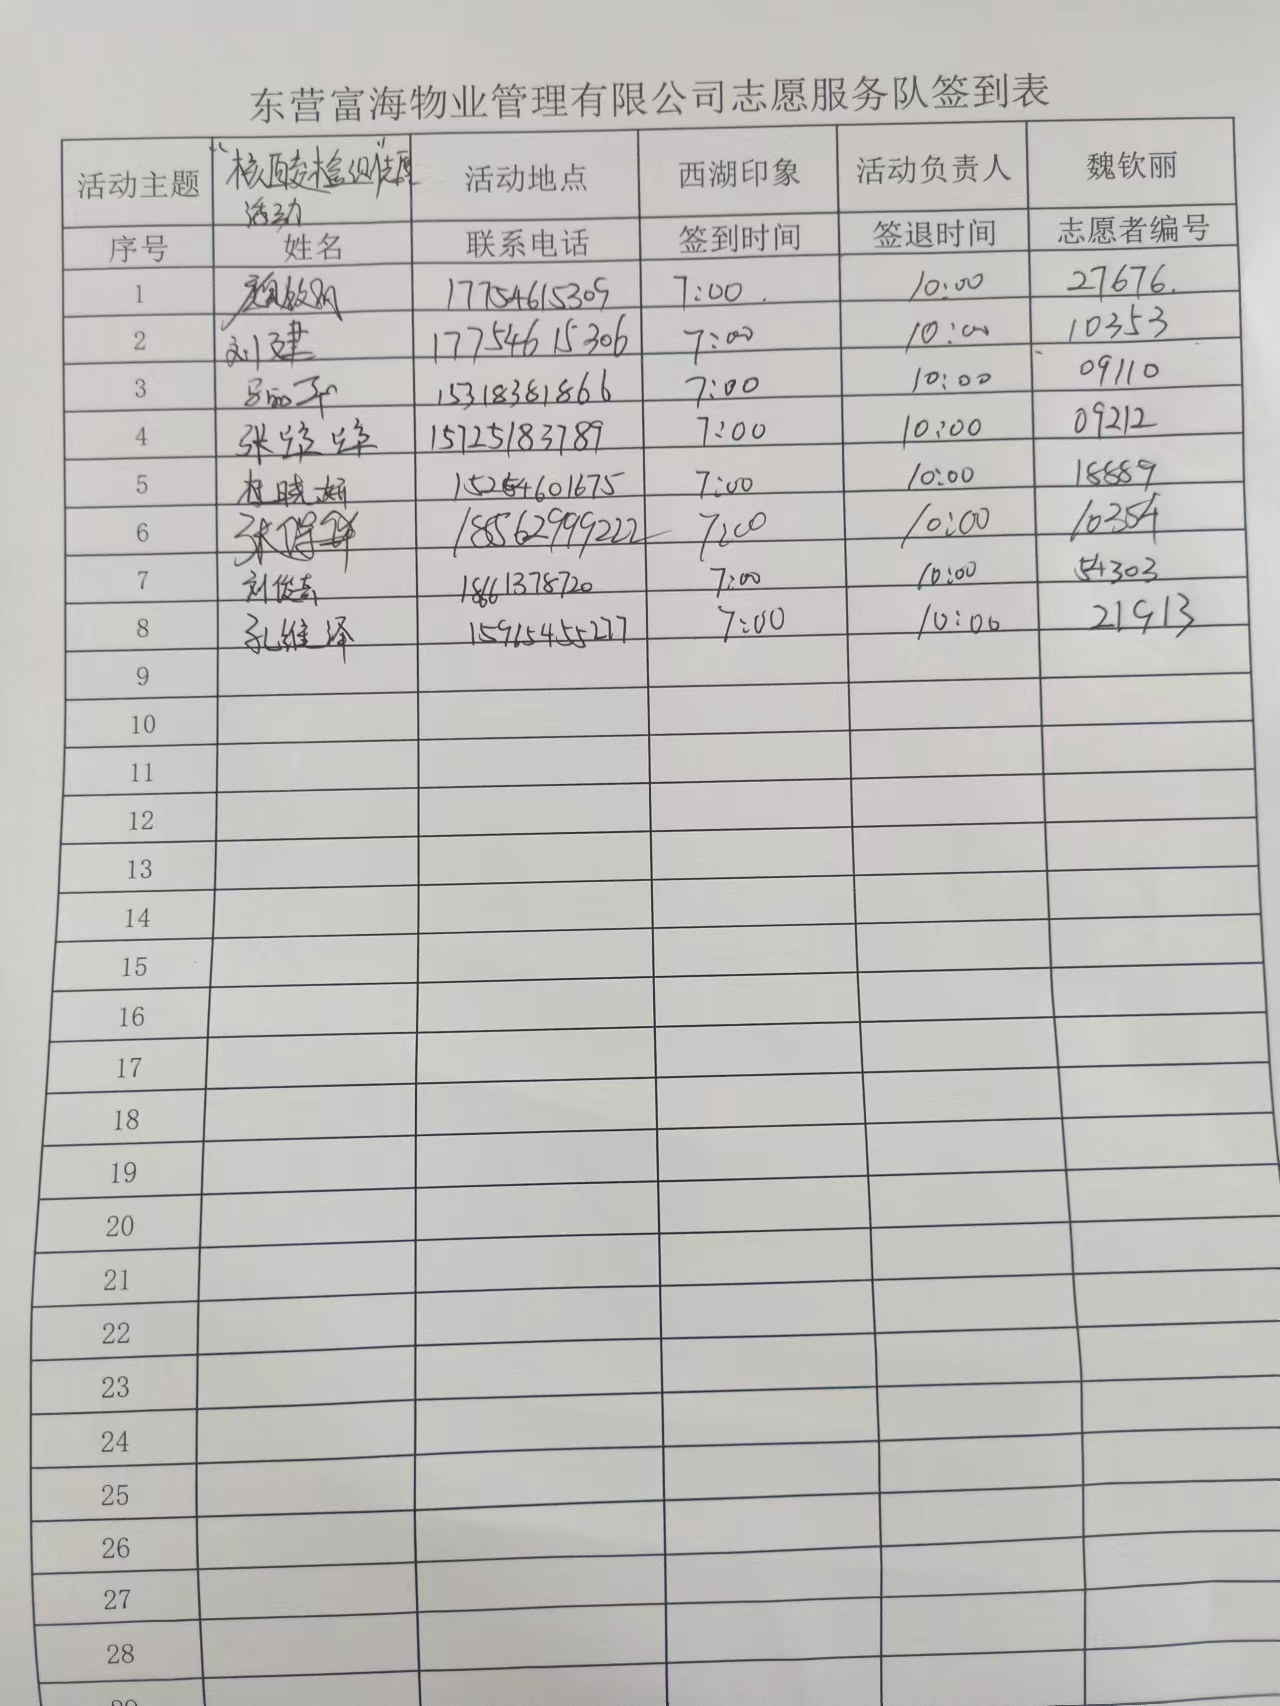 东营富海物业管理有限公司志愿服务队签到表
活动主题 “核酸检测”志愿活动 活动地点 西湖印象 活动负责人 魏钦丽
序号 姓名 联系电话 签到时间 签退时间 志愿者编号
1 17754615309 7:00 10:00 27676
2 刘建 17754615306 7:00 10:00 10353
3 15318381866 7:00 10:00 09110
4 张 15725183789 7:00 10:00 09212
5 杜晓妍 15264601675 7:00 10:00 18889
6 18562999222 7:00 10:00 10354
7 刘俊杰 18661378720 7:00 10:00 54303
8 孔维泽 15965455277 7:00 10:00 21913
9
10
11
12
13
14
15
16
17
18
19
20
21
22
23
24
25
26
27
28